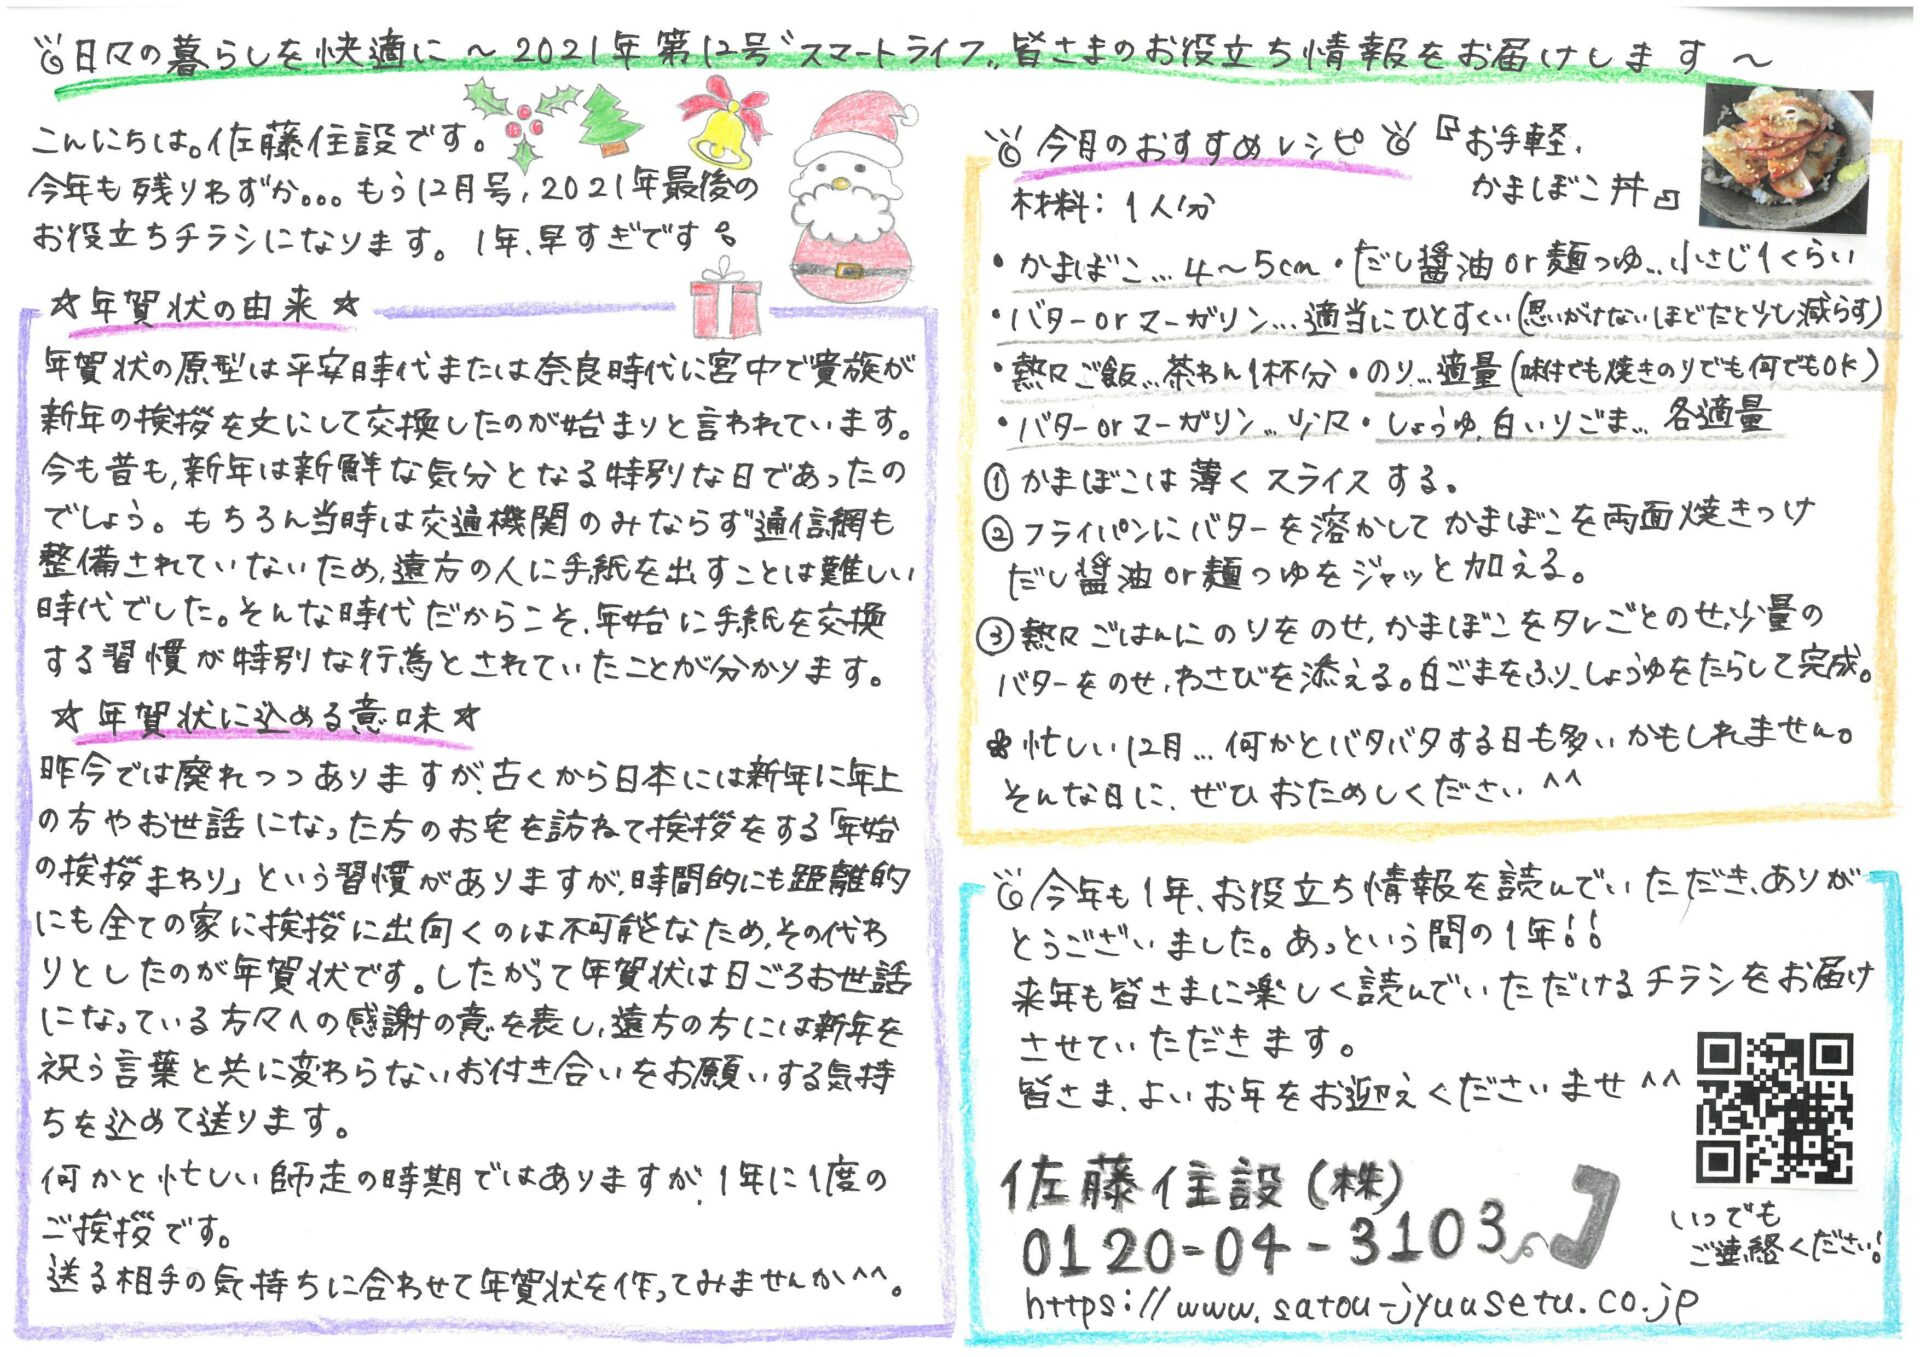 日々の暮らしを快適に ～2021年 第12号"スマートライフ"皆さまのお役立ち情報をお届けします～
こんにちは。佐藤住設です。
今年も残りわずか。。。もう12月号，2021年最後の
お役立ちチラシになります。1年、早すぎです。
☆年賀状の由来☆
年賀状の原型は平安時代または奈良時代に宮中で貴族が
新年の挨拶を文にして交換したのが始まりと言われています。
今も昔も、新年は新鮮な気分となる特別な日であったの
でしょう。もちろん当時は交通機関のみならず通信網も
整備されていないため、遠方の人に手紙を出すことは難しい
時代でした。そんな時代だからこそ、年始に手紙を交換
する習慣が特別な行為とされていたことが分かります。
☆年賀状に込める意味☆
昨今では廃れつつありますが、古くから日本には新年に年上
の方やお世話になった方のお宅を訪ねて挨拶をする「年始
の挨拶まわり」という習慣がありますが、時間的にも距離的
にも全ての家に挨拶に出向くのは不可能なため、その代わ
りとしたのが年賀状です。したがって年賀状は日ごろお世話
になっている方々への感謝の意を表し、遠方の方には新年を
祝う言葉と共に変わらないお付き合いをお願いする気持
ちを込めて送ります。
何かと忙しい師走の時期ではありますが、1年に1度の
ご挨拶です。
送る相手の気持ちに合わせて年賀状を作ってみませんか^^。
今月のおすすめレシピ 『お手軽、
かまぼこ丼』
材料：1人分
・かまぼこ…4～5cm ・だし醤油or麺つゆ…小さじ1くらい
・バターorマーガリン…適当にひとすくい(思いがけないほどだと少し減らす)
・熱々ご飯…茶わん1杯分 ・のり…適量(味付でも焼きのりでも何でもOK)
・バターorマーガリン…少々 ・しょうゆ，白いりごま…各適量
①かまぼこは薄くスライスする。
②フライパンにバターを溶かしてかまぼこを両面焼きつけ
だし醤油or麺つゆをジャッと加える。
③熱々ごはんにのりをのせ，かまぼこをタレごとのせ，少量の
バターをのせ，わさびを添える。白ごまをふり、しょうゆをたらして完成。
忙しい12月…何かとバタバタする日も多いかもしれません。
そんな日に、ぜひおためしください^^
今年も1年、お役立ち情報を読んでいただき、ありが
とうございました。あっという間の1年!!
来年も皆さまに楽しく読んでいただけるチラシをお届け
させていただきます。
皆さま、よいお年をお迎えくださいませ^^
佐藤住設(株)
0120-04-3103
https://www.satou-jyuusetu.co.jp
いつでも
ご連絡ください!